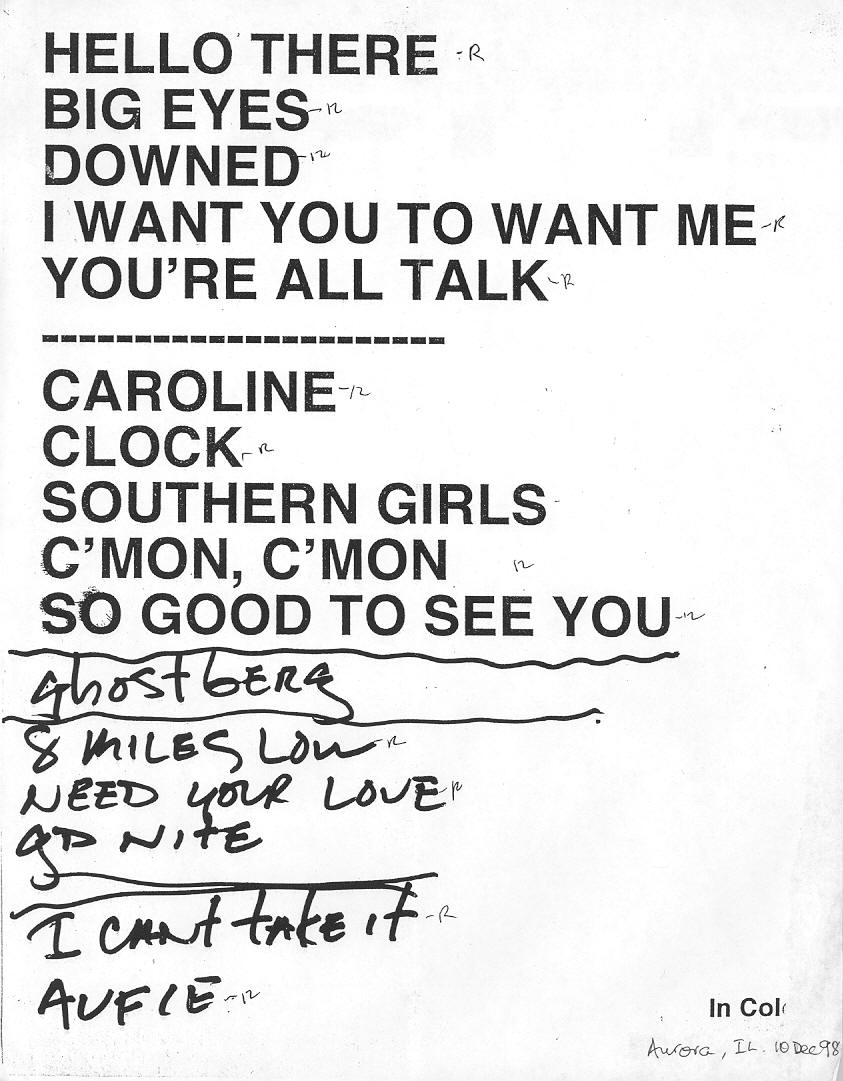 HELLO THERE -R
BIG EYES -R
DOWNED -R
I WANT YOU TO WANT ME -R
YOU'RE ALL TALK -R
----------------------
CAROLINE -R
CLOCK -R
SOUTHERN GIRLS
C'MON, C'MON R
SO GOOD TO SEE YOU -R
ghostbERg
8 MILES LOW -R
NEED YOUR LOVE R
gD NITE
I CANt tAKE it -R
AUFIE -R
In Col
Aurora, IL. 10 Dec 98